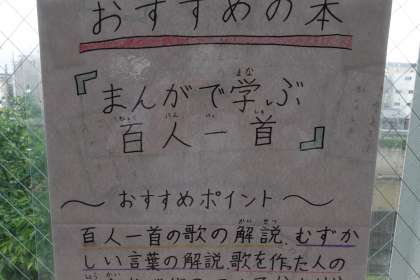 おすすめの本
『まんがで学ぶ
百人一首』
～おすすめポイント～
百人一首の歌の解説、むずか
しい言葉の解説、歌を作った人の